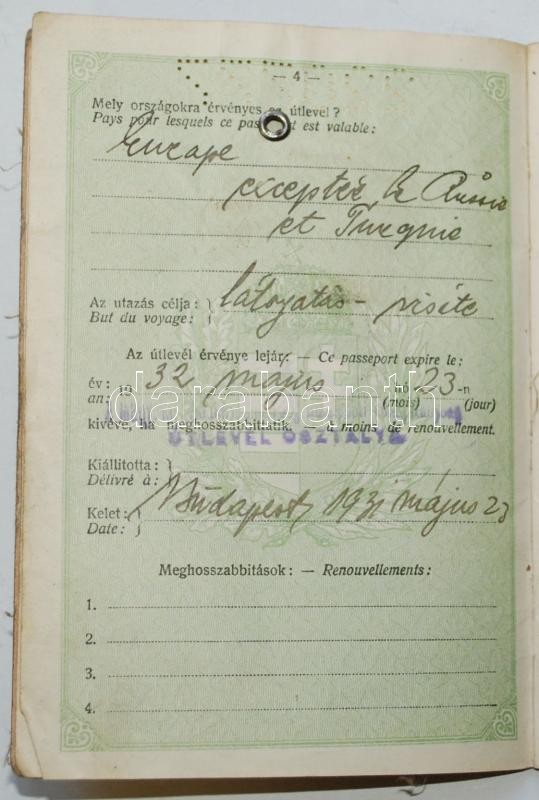 — 4 —
Mely országokra érvényes ez útlevél ?
Pays pour lesquels ce passeport est valable :
Europe
exceptée la Russie
et Turquie
Az utazás célja : } látogatás - visite
But du voyage : }
Az útlevél érvénye lejár : — Ce passeport expire le :
év : 19 32 május hó 23-n
an : (mois) (jour)
kivéve, ha meghosszabbíttatik. — à moins de renouvellement.
ÚTLEVÉL OSZTÁLYA
Kiállította : }
Délivré à : }
Kelet : } Budapest, 1931 május 23
Date : }
Meghosszabbitások : — Renouvellements :
1.
2.
3.
4.
darabanth